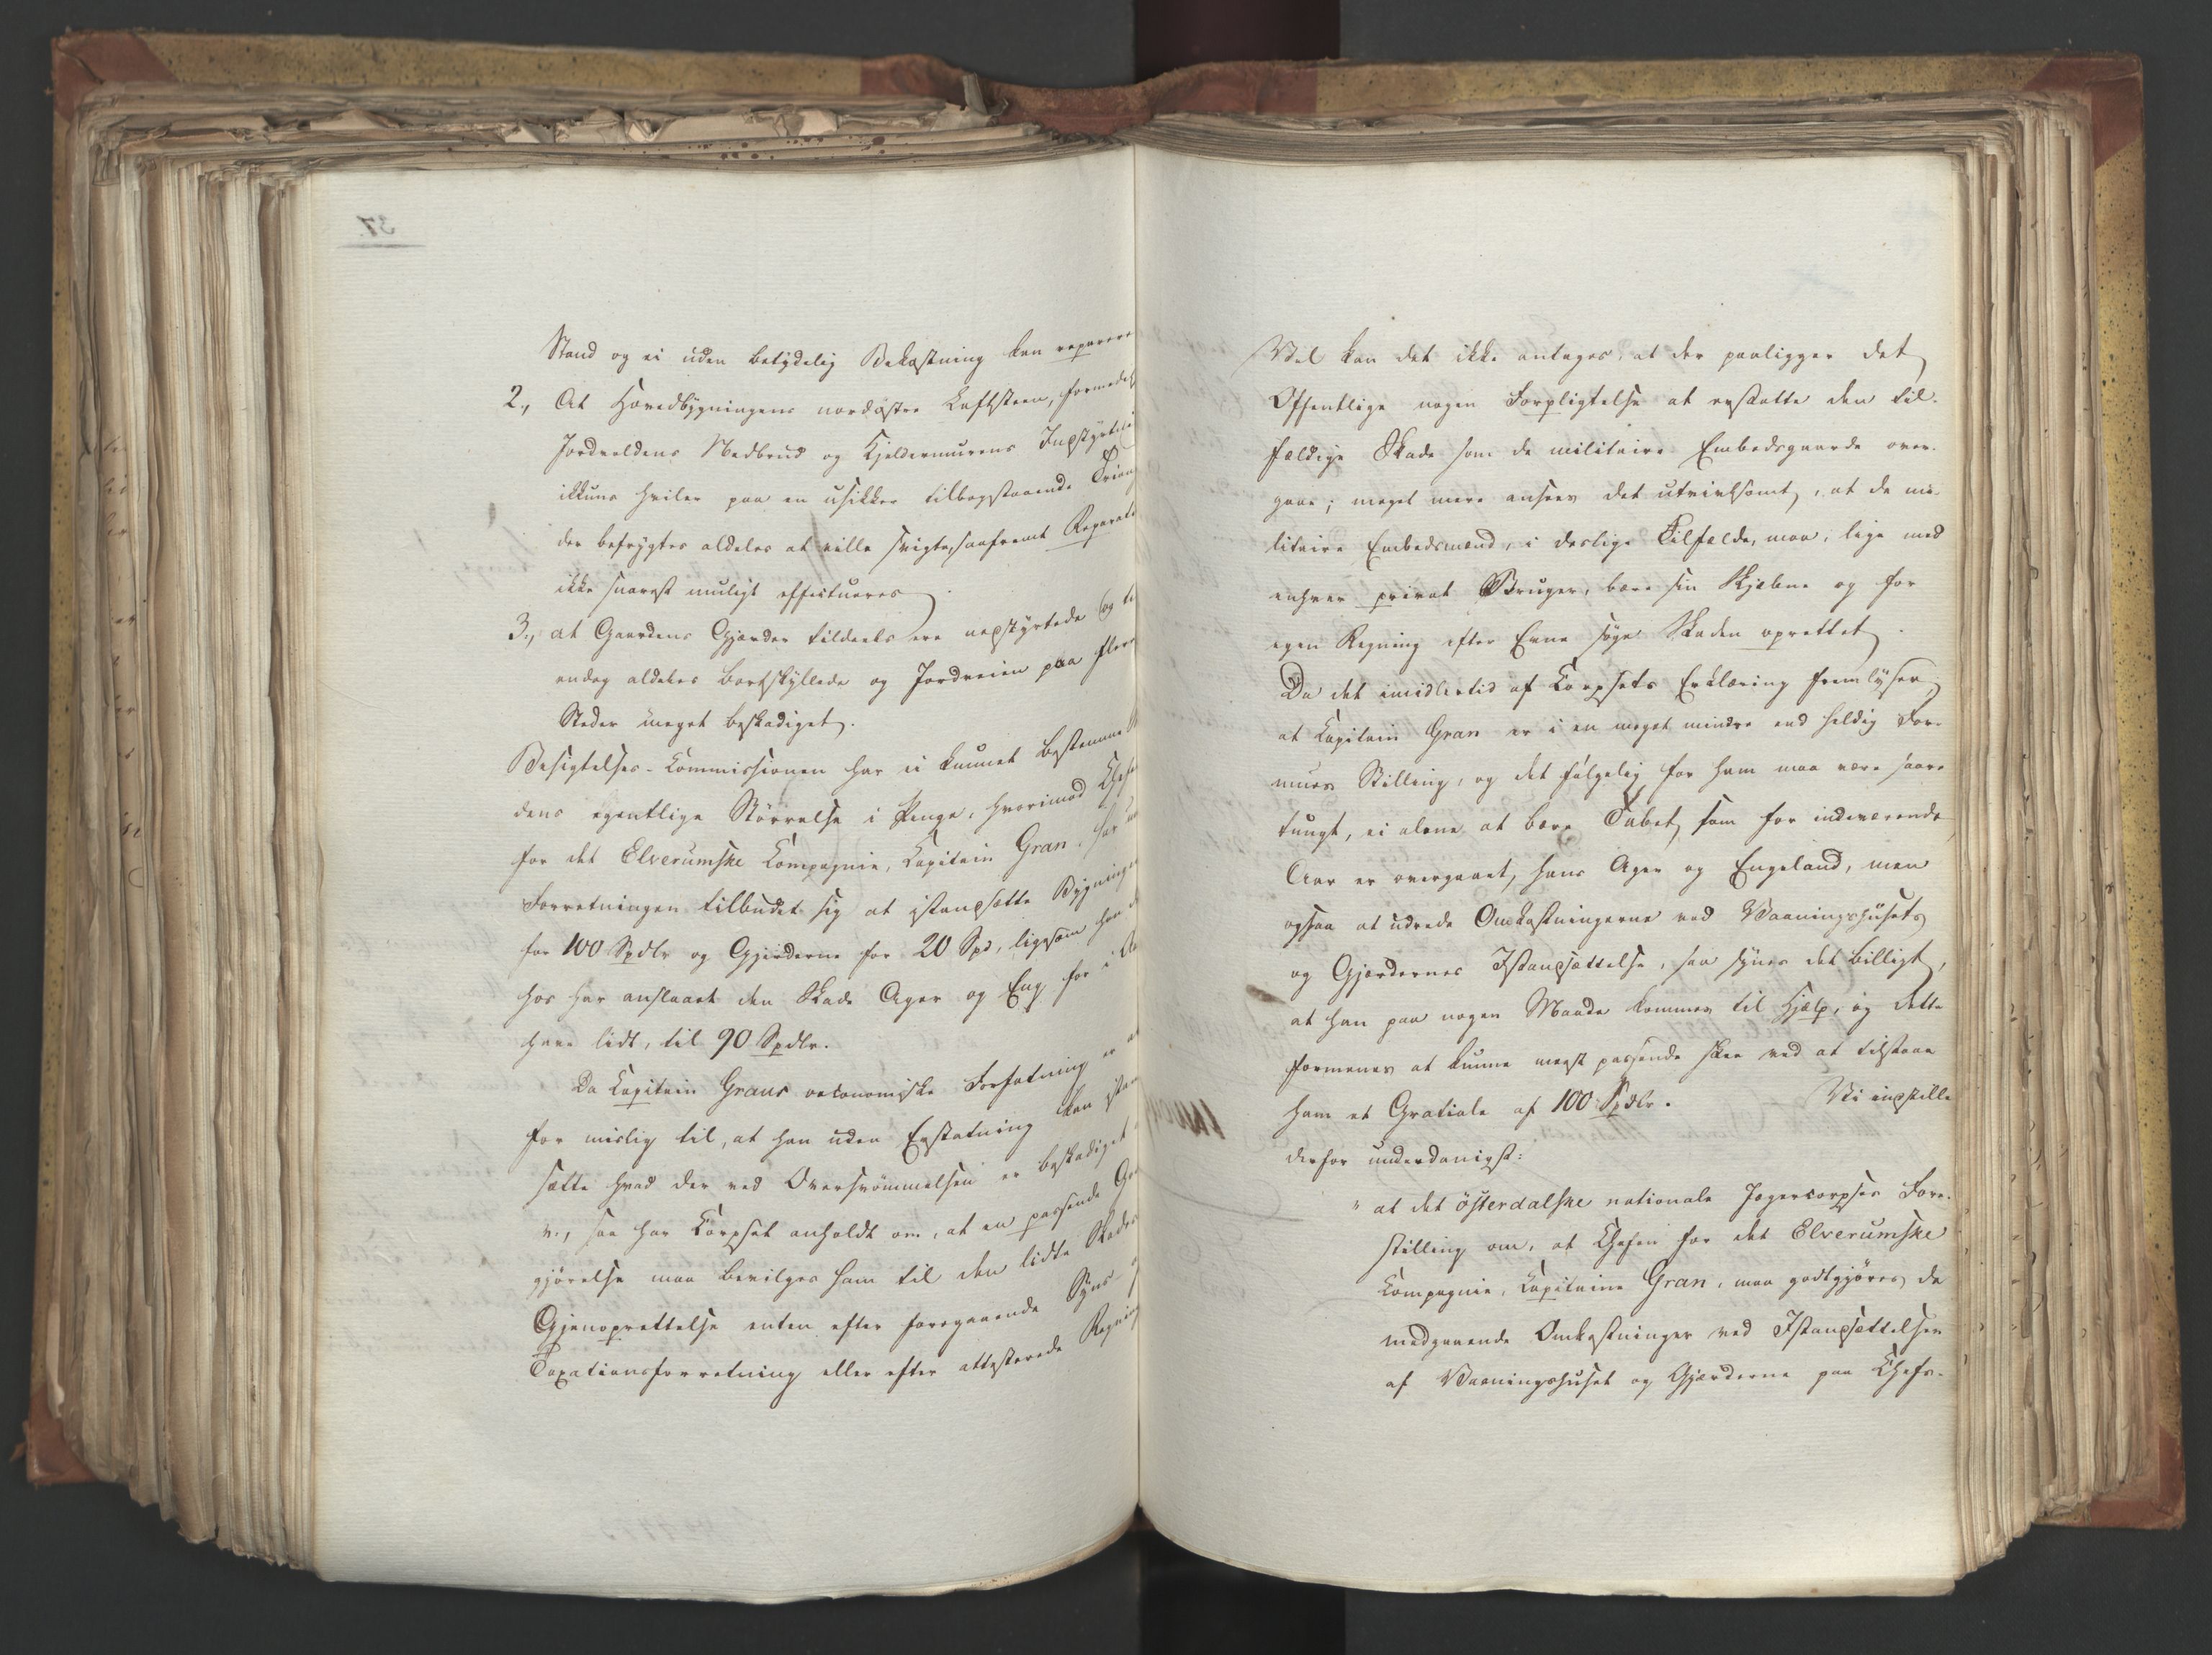 Stand og ei uden betydelig Bekostning kan reparere
2., At Hovedbygningens nordøstre Luftsteen, formedelst
Jordvoldens Nedbrud og Kjeldermurens Indstyrtni
ikkuns hviler paa en usikker tilbagestaaende
der befrygtes aldeles at ville svigte, saafremt Reparati
ikke snarest muligt effectueres
3., at Gaardens Gjærder tildeels ere nedstyrtede og ti
endog aldeles bortskyllede og Jordveien paa flere
Steder meget beskadiget.
Besigtelses-Commissionen har ei kunnet bestemme
dens egentlige Størrelse i Penge, hvorimod Chefen
for det Elverumske Compagnie, Capitain Gran, har
Forretningen tilbudet sig at istandsætte Bygningen
for 100 Spdlr og Gjerderne for 20 Spd, ligesom han
hos har anslaaet den Skade Ager og Eng for i
have lidt, til 90 Spdlr.
Da Capitain Grans oeconomiske Forfatning er
for mislig til, at han uden Erstatning kan istand
sætte hvad der ved Oversvømmelsen er beskadiget
v., saa har Corpset anholdt om, at en passende Go
gjørelse maa bevilges ham til den lidte Skades
Gjenoprettelse enten efter foregaaende Syns- og
Taxationsforretning eller efter attesterede Regning
Vel kan det ikke antages, at der paaligger det
Offentlige nogen Forpligtelse at erstatte den til-
fældige Skade som de militaire Embedsgaarde over-
gaae; meget mere ansees det utvivlsomt, at de mi-
litaire Embedsmænd, i deslige Tilfælde, maa, lige med
enhver privat Bruger, bære sin Skjæbne og for
egen Regning efter Evne søge Skaden oprettet.
Da det imidlertid af Corpsets Erklæring fremlyser,
at Capitain Gran er i en meget mindre end heldig For-
mues Stilling, og det følgelig for ham maa være saare
tungt, ei alene at bære Tabet, som for indeværende
Aar er overgaaet, hans Ager og Engeland, men
ogsaa at udrede Omkostningerne ved Vaaningshusets
og Gjærdernes Istandsættelse, saa synes det billigt,
at han paa nogen Maade kommes til Hjælp, og dette
formenes at kunne meest passende skee ved at tilstaae
ham et Gratiale af 100 Spdlr. Vi indstille
derfor underdanigst:
" at det österdalske nationale Jægercorpses Fore-
stilling om, at Chefen for det Elverumske
Compagnie, Capitaine Gran, maa godtgjøres de
medgaaende Omkostninger ved Istandsættelsen
af Vaaningshuset og Gjærderne paa Chefs-